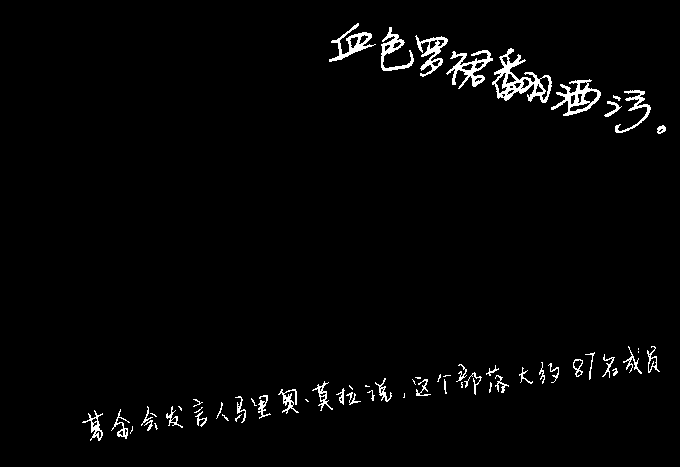 血色罗裙翻酒污。
基金会发言人马里奥·莫拉说,这个部落大约87名成员